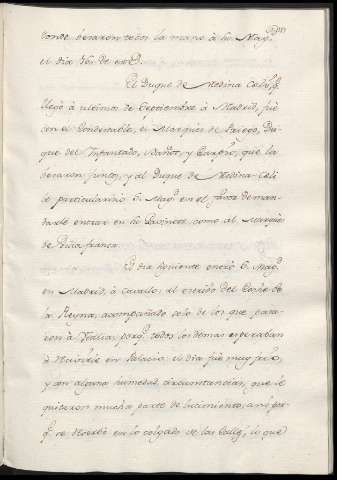 donde besaron todos la mano à Su Mag.
el dia 16. de
El Duque de Medina Celi,
llegò à ultimos de Septiembre à Madrid, fue
con el Condestable, el Marques de Priego, Du-
que del Infantado, Baños, y que la
besaron juntos, y al Duque de Medina-Celi
le particularizò S. Mag. en el favor de man-
darle entrar en su Gavinete, como al Marques
de Villa franca.
El dia siguiente entrò S. Mag.
en Madrid, à cavallo, al estrivo del Coche de
la Reyna, acompañado solo de los que pasa-
ron à Italia, porq. todos los demas esperaban
à recivirle en Palacio: el dia fue muy
y con alguna humedad, circunstancias, que le
quitaron mucha parte de lucimiento, aun por-
q. se notò en lo colgado de las Calles, lo que